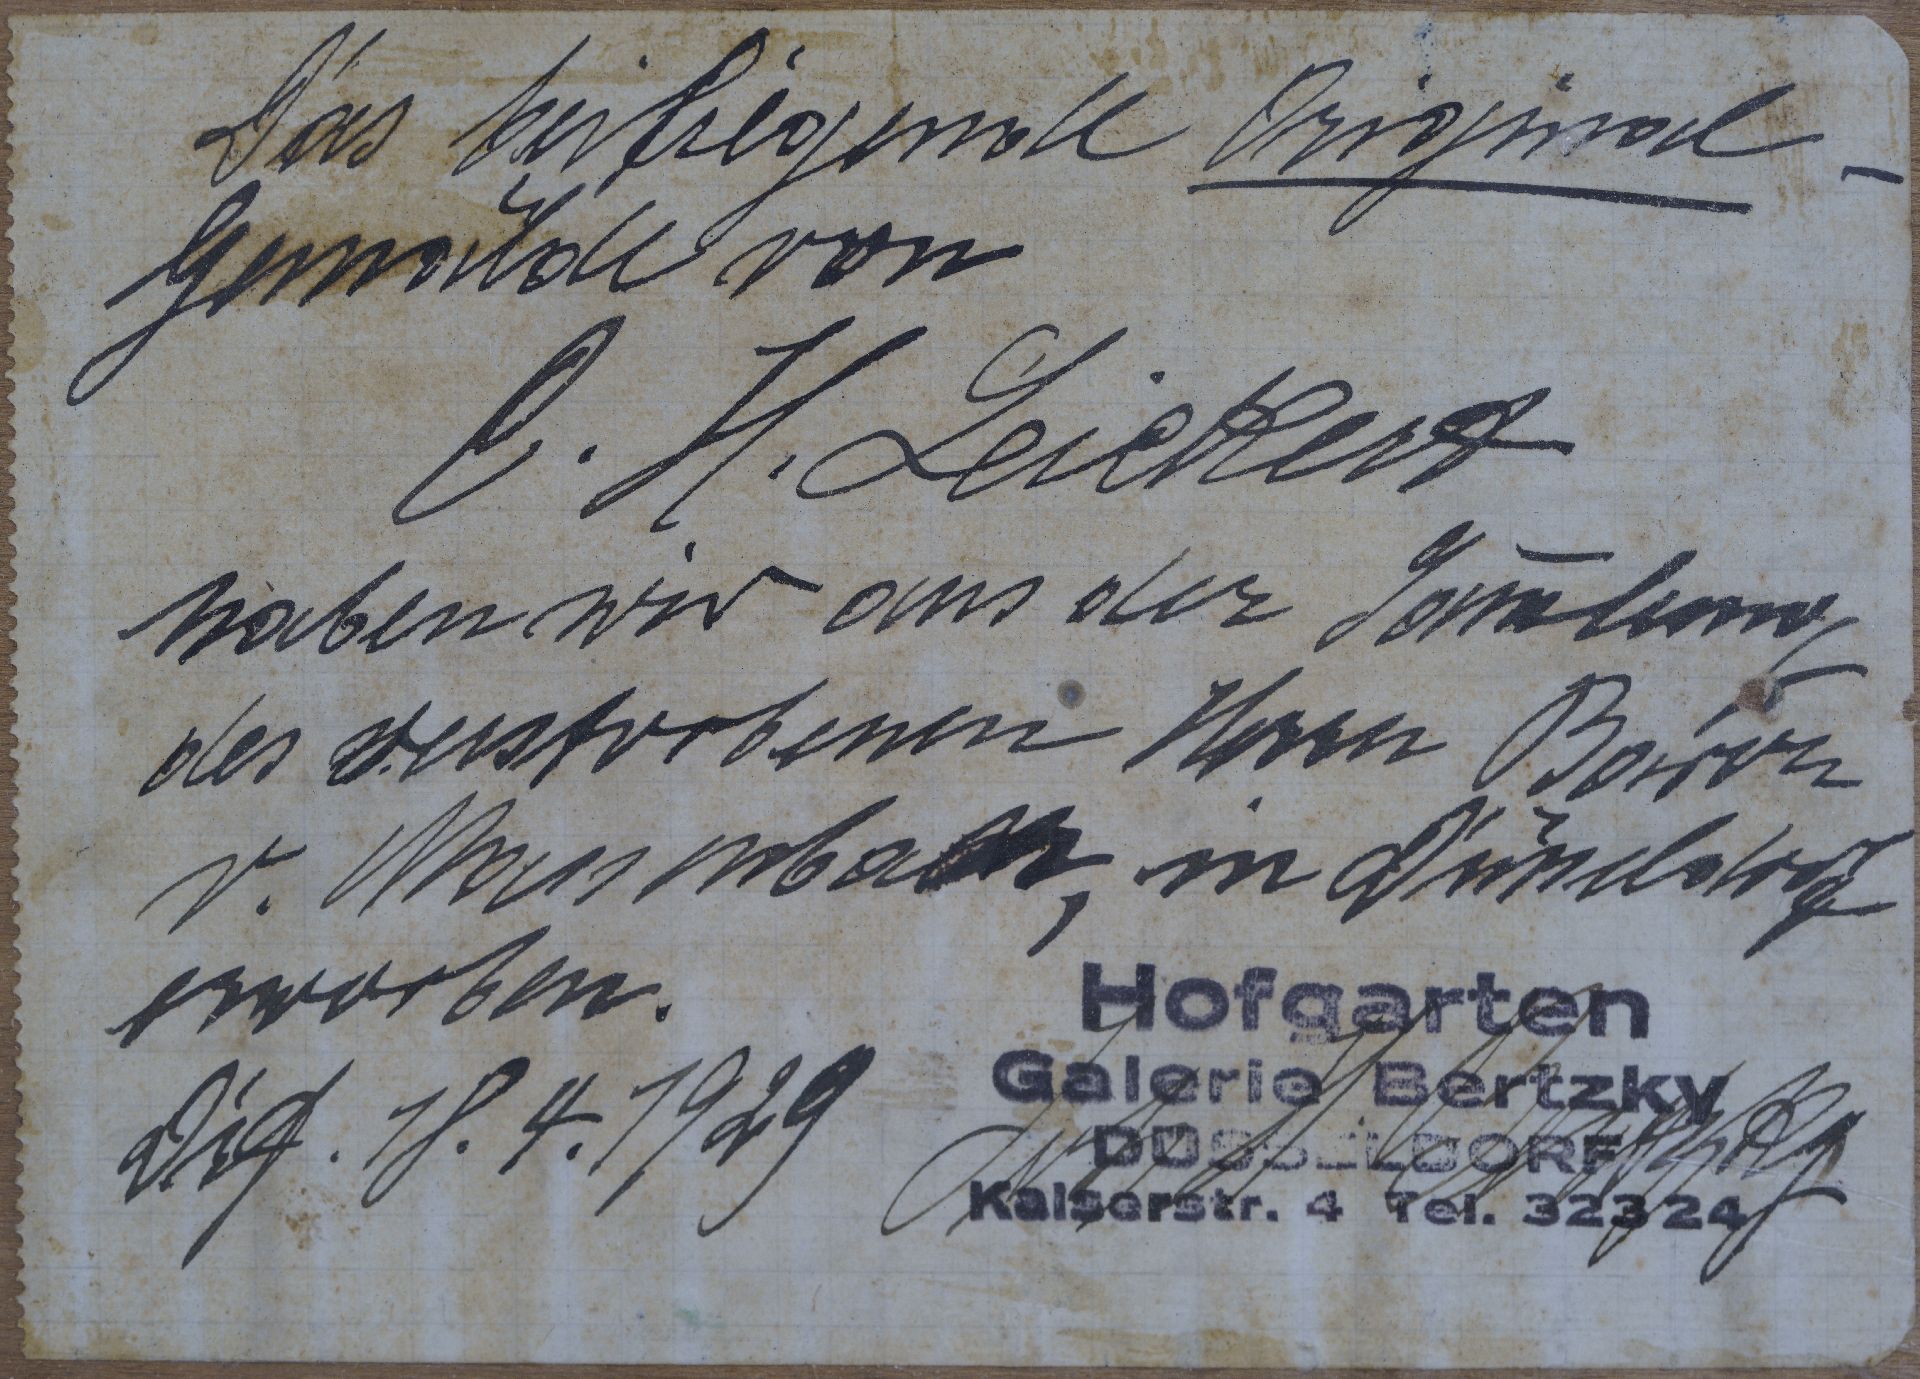 Das beiliegende Original-
Gemälde von
C. H. Leickert
haben wir aus der Sam̄lung
des verstorbenen Herrn Baron
v. in Düsseldorf
erworben.
D'df. 18. 4. 1929
Hofgarten
Galerie Bertzky
DÜSSELDORF
Kaiserstr. 4 Tel. 32324